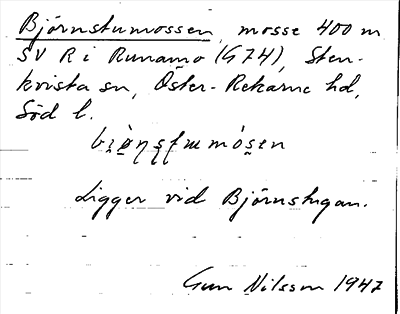 Björnstumossen, mosse 400 m
SV R i Runamo (G74), Sten-
kvista sn, Öster-Rekarne hd,
Söd l.
Ligger vid Björnstugan.
Gun Nilsson 1947